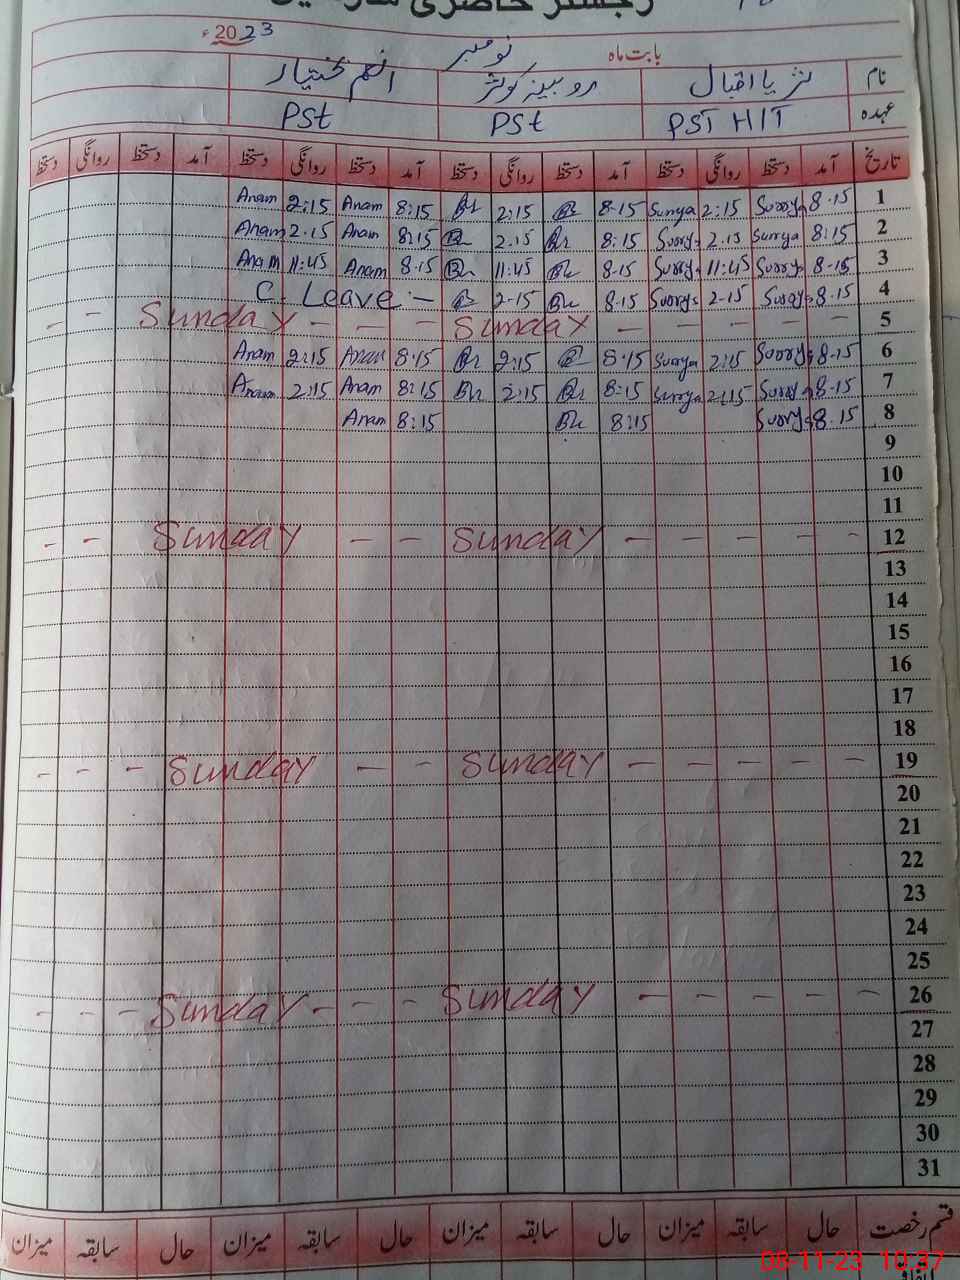 رجسٹر حاضری
2023ء
بابت ماہ نومبر
نام ثریا اقبال روبینہ کوثر انعم بختیار
عہدہ PST HIT PSt PSt
تاریخ آمد دستخط روانگی دستخط آمد دستخط روانگی دستخط آمد دستخط روانگی دستخط آمد دستخط روانگی دستخط
1 8.15 Surrya 2:15 Surrya 8.15 2:15 8:15 Anam 2:15 Anam
2 8:15 Surrya 2.15 Surrya 8:15 2.15 8:15 Anam 2.15 Anam
3 8.15 Surrya 11:45 Surrya 8.15 11:45 8.15 Anam 11:45 Anam
4 8.15 Surrya 2-15 Surrya 8.15 2-15 C. Leave :-
5 - - - - - Sunday - - - Sunday - -
6 8.15 Surrya 2:15 Surrya 8.15 2:15 8.15 Anam 2:15 Anam
7 8.15 Surrya 2:15 Surrya 8:15 2:15 8:15 Anam 2:15 Anam
8 8.15 Surrya 8:15 8:15 Anam
9
10
11
12 - - - - - Sunday - - Sunday - -
13
14
15
16
17
18
19 - - - - - Sunday - - Sunday - - -
20
21
22
23
24
25
26 - - - - - Sunday - - - Sunday - - -
27
28
29
30
31
قسم رخصت حال سابقہ میزان حال سابقہ میزان حال سابقہ میزان حال سابقہ میزان
08-11-23 10:37